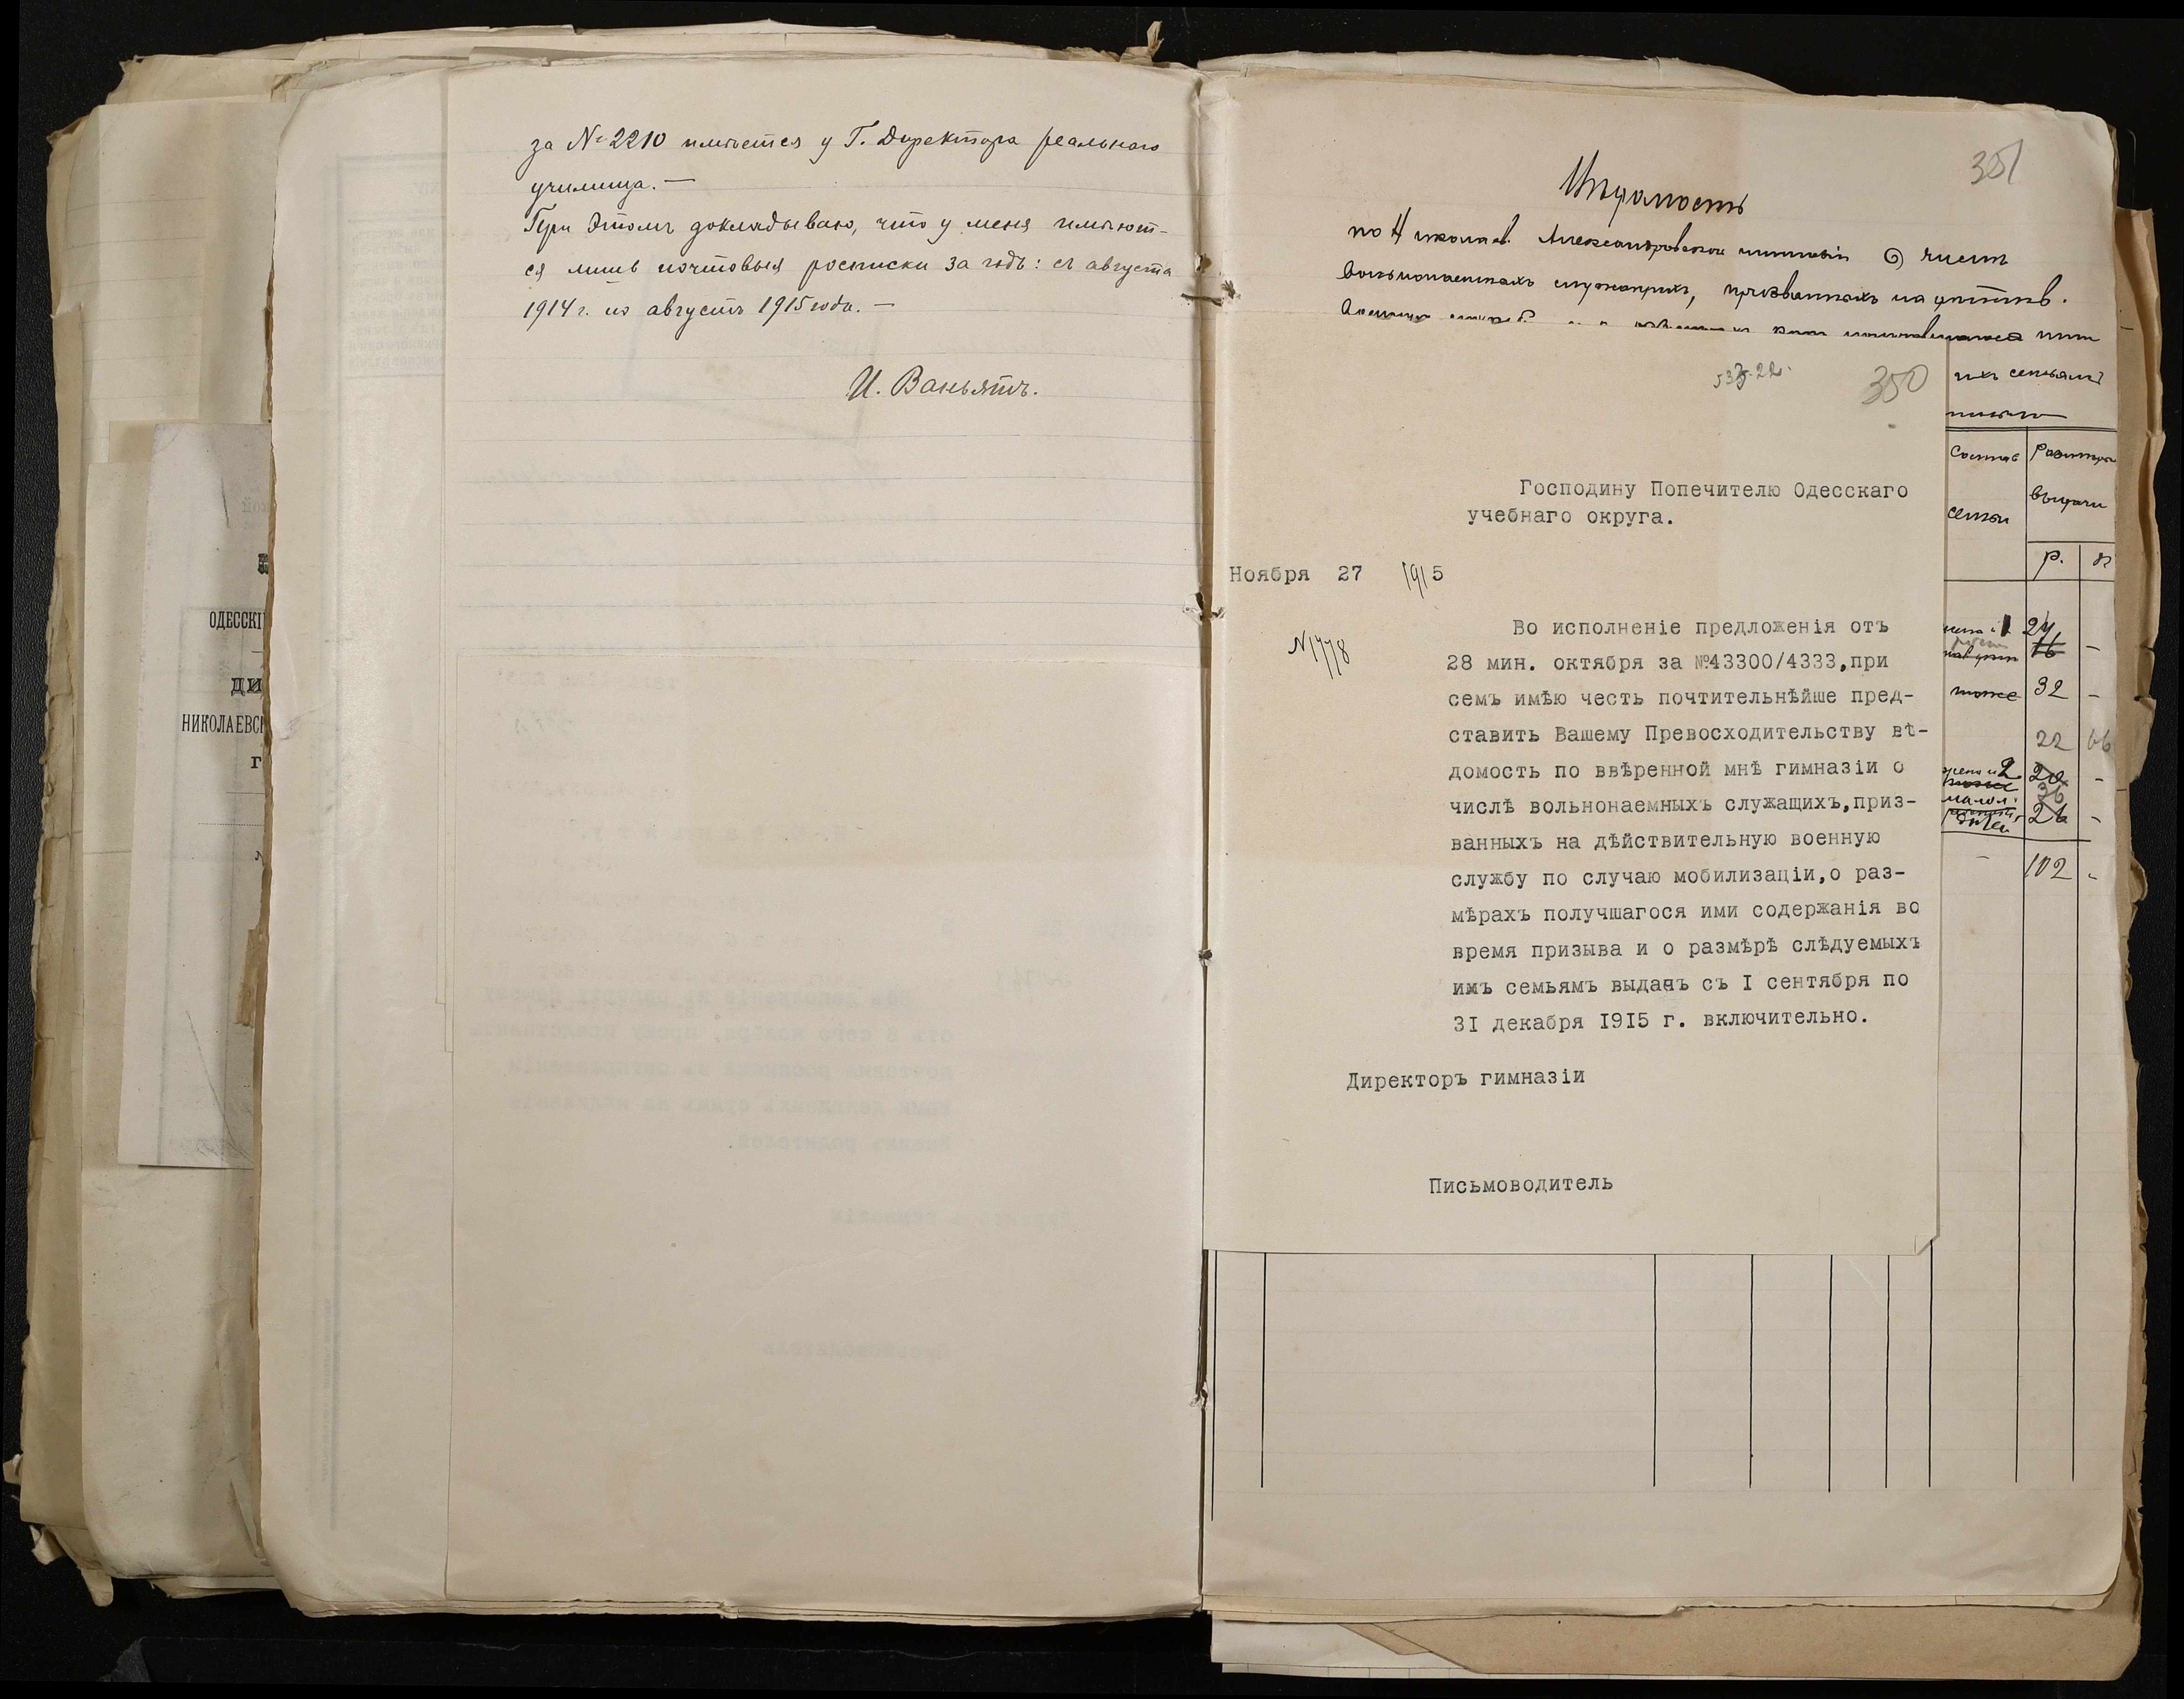 за № 2210 имѣется у Г. Директора реальнаго
училища. —
При этомъ докладываю, что у меня имѣют-
ся лишь почтовыя росписки за годъ: съ августа
1914 г. по августъ 1915 года. —
И. Ваньятъ.
ОДЕССКІ
ДИ
НИКОЛАЕВСК
Г
351
Вѣдомость
по Николаев. Александровской гимназіи о числѣ
вольнонаемныхъ служащихъ, призванныхъ на дѣйств.
ихъ семьямъ
350
Господину Попечителю Одесскаго
учебнаго округа.
Ноября 27 1915
N 1778
Во исполненіе предложенія отъ
28 мин. октября за №43300/4333,при
семъ имѣю честь почтительнѣйше пред-
ставить Вашему Превосходительству вѣ-
домость по ввѣренной мнѣ гимназіи о
числѣ вольнонаемныхъ служащихъ,приз-
ванныхъ на дѣйствительную военную
службу по случаю мобилизаціи,о раз-
мѣрахъ получшагося ими содержанія во
время призыва и о размѣрѣ слѣдуемыхъ
имъ семьямъ выдачъ съ I сентября по
3I декабря 1915 г. включительно.
Директоръ гимназіи
Письмоводитель
Составъ
семьи
Размѣръ
выдачи
р. к
24
16 –
тоже 32 –
22 66
жена и 2 20 –
малол. 36
дѣтей 26 –
– 102 –